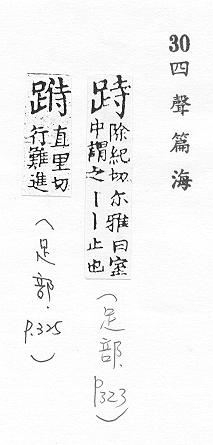 30 四聲篇海
跱
除紀切尔雅曰室
中謂之丨丨止也
(足部. P.323)
直里切
行難進
(足部. P.325)